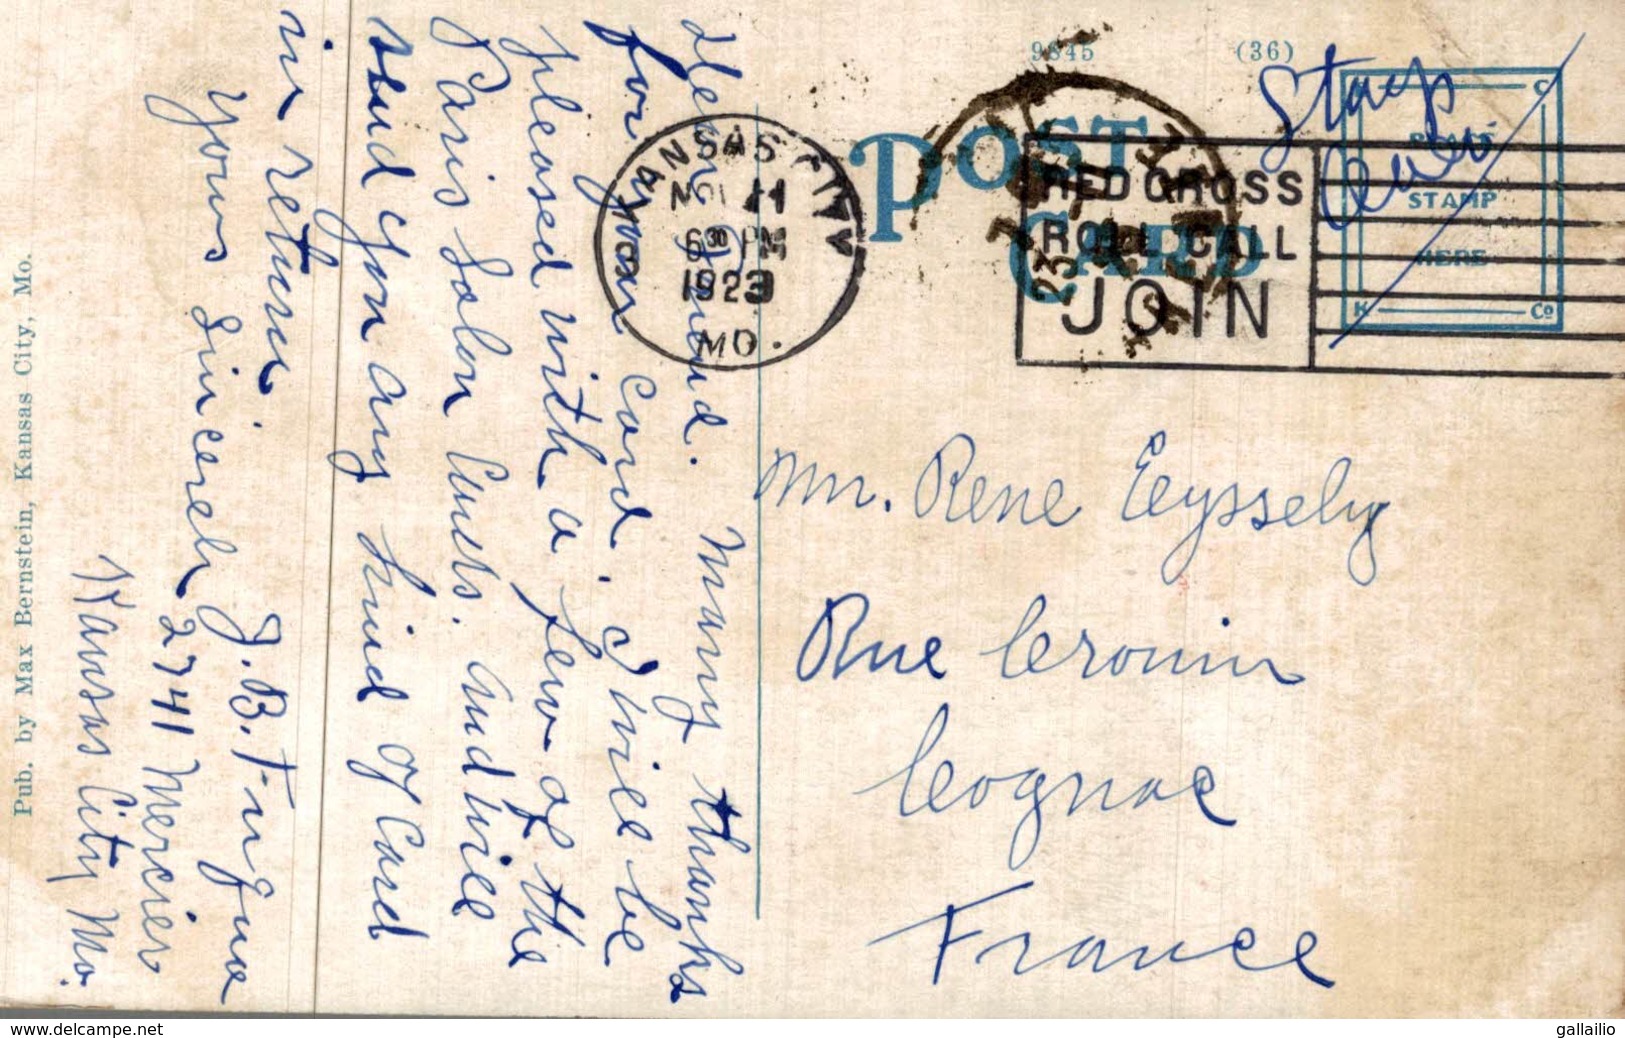 9845 (36)
Stamp
Over
POST CARD
PLACE
STAMP
HERE
K C Co
KANSAS CITY
NOV 11
6 30 PM
1923
MO.
RED CROSS
ROLL CALL
JOIN
Dear Friend. Many thanks
for your Card. I will be
pleased with a few of the
Paris Salon Cards. And will
send you any kind of Card
in return.
Yours Sincerely
J. B.
2741 Mercier
Kansas City Mo.
Mr. Rene Eeyssely
Rue Cronin
Cognac
France
Pub. by Max Bernstein, Kansas City, Mo.
www.delcampe.net
gallailio